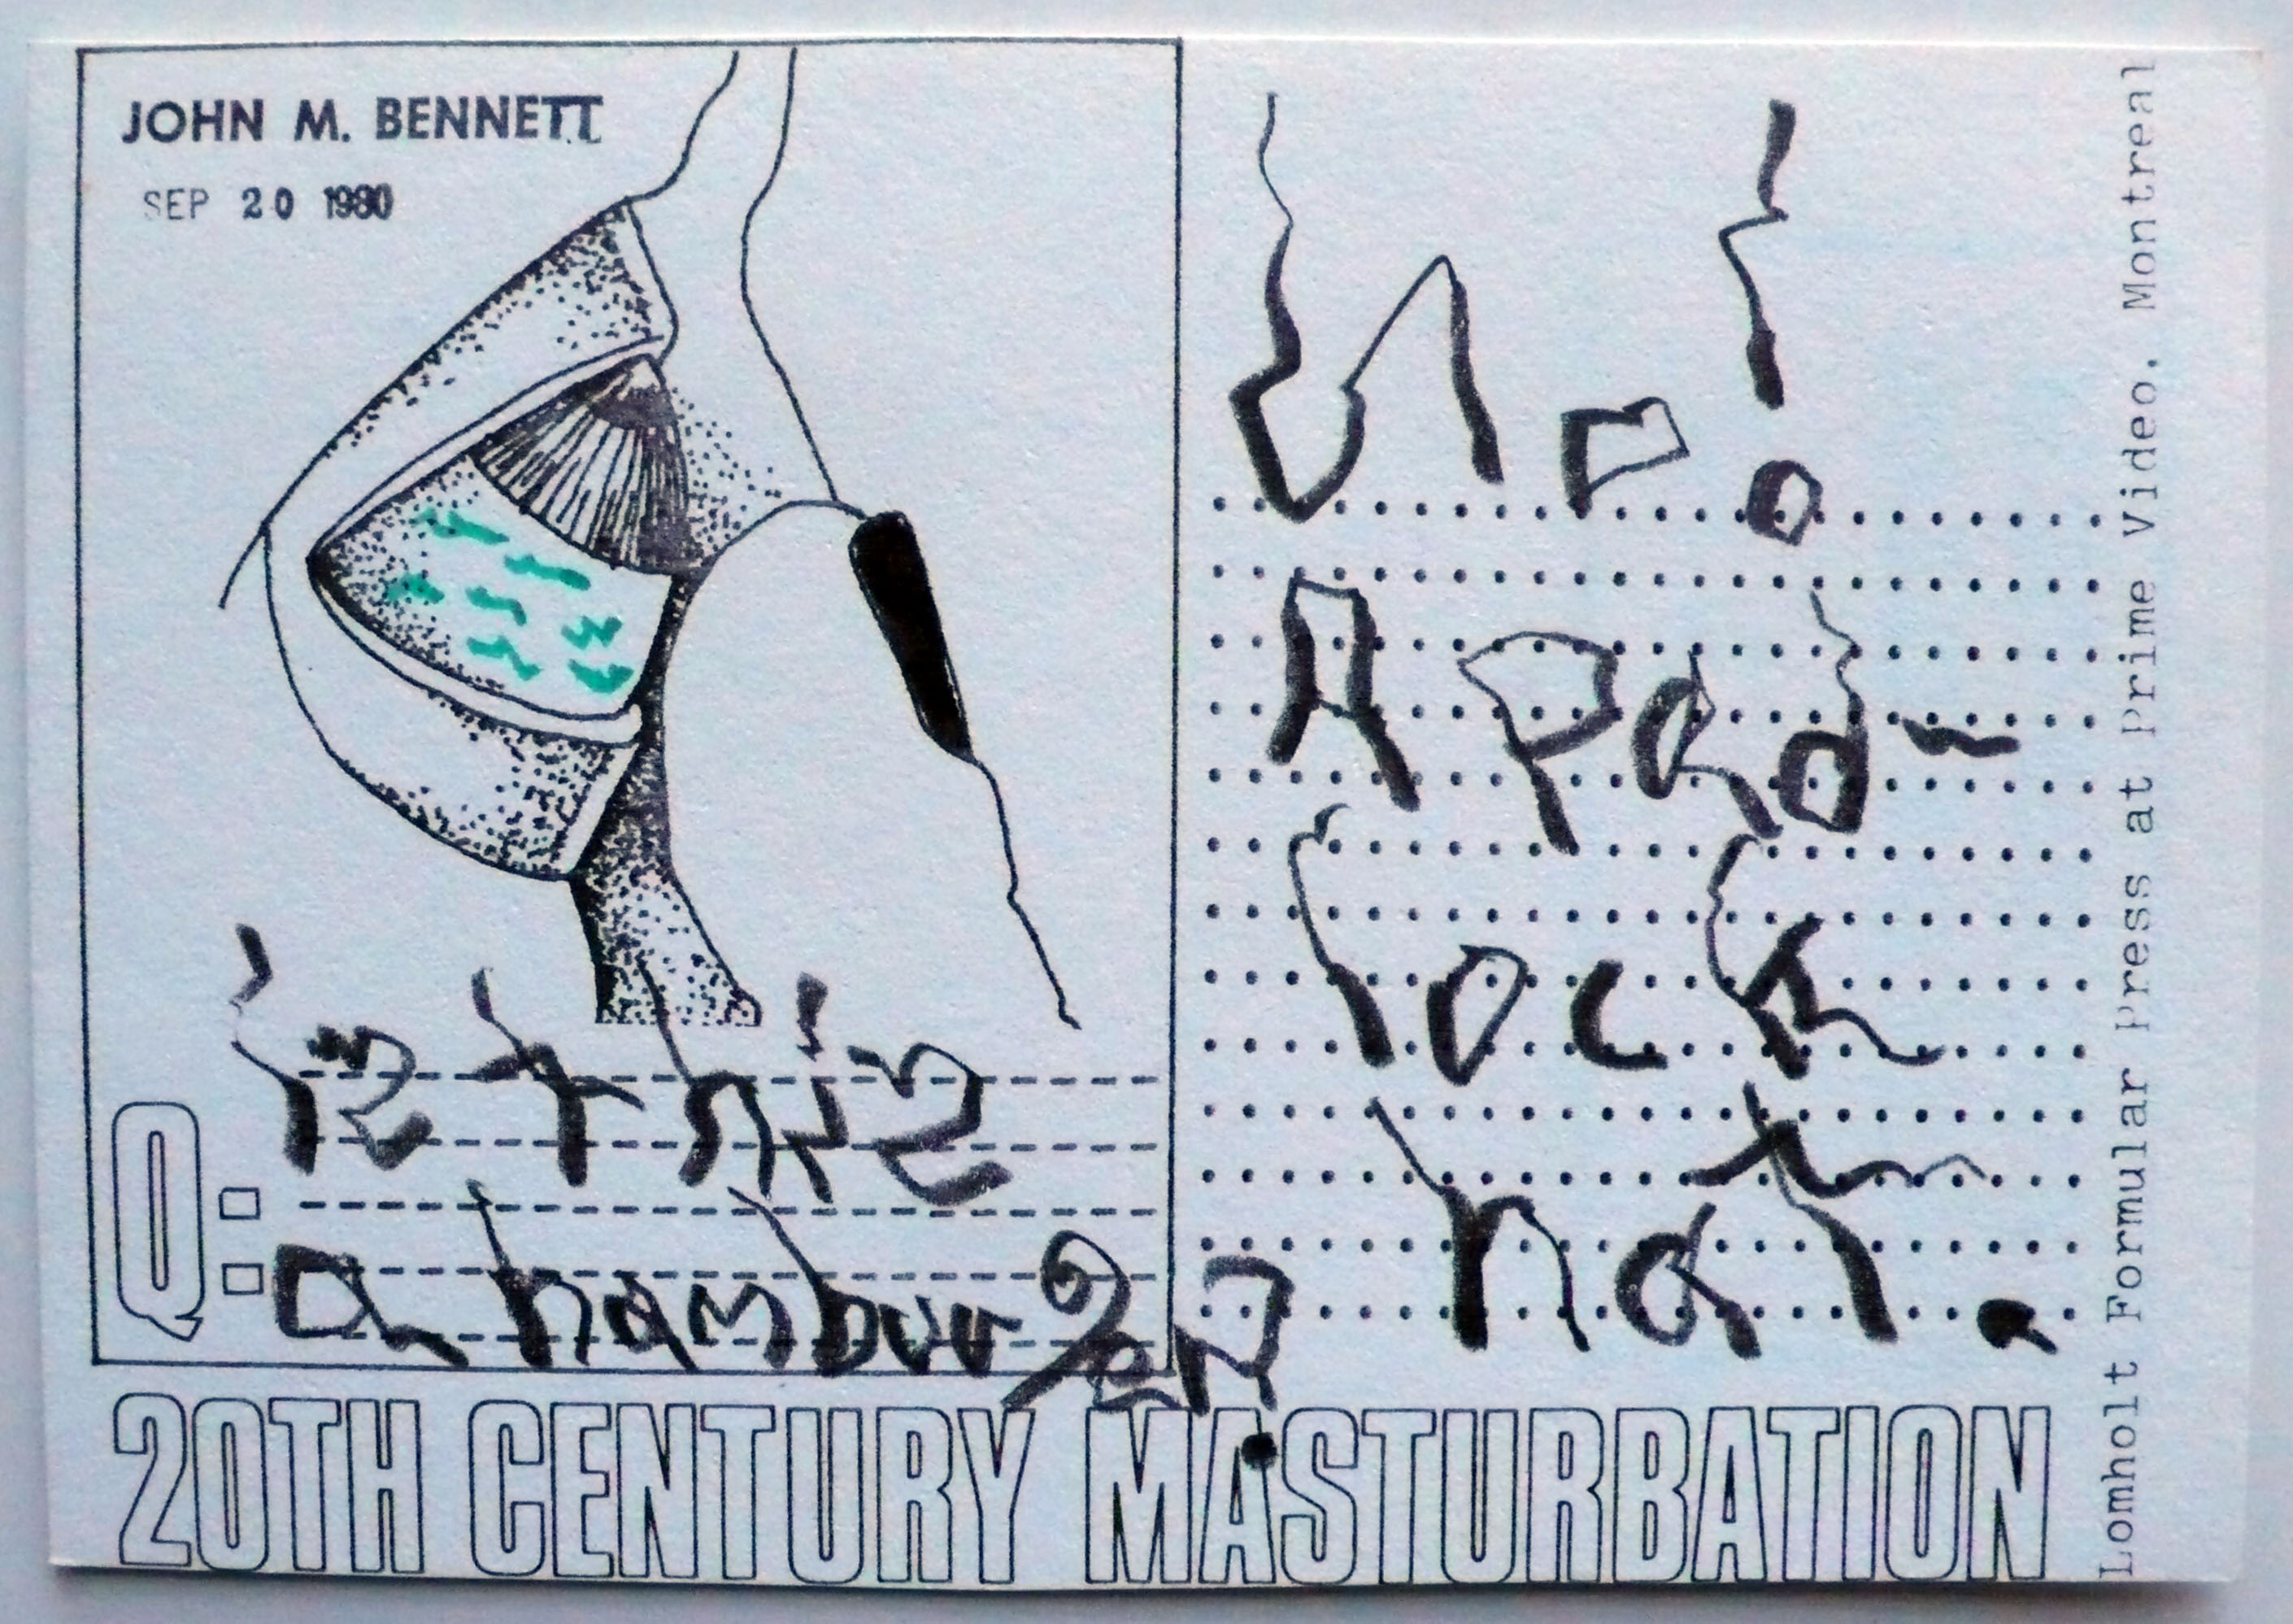 JOHN M. BENNETT
SEP 20 1980
Q:
iz thiz
a hamburger?
No!
A pad-
lock
hat.
20TH CENTURY MASTURBATION
Lomholt Formular Press at Prime Video. Montreal